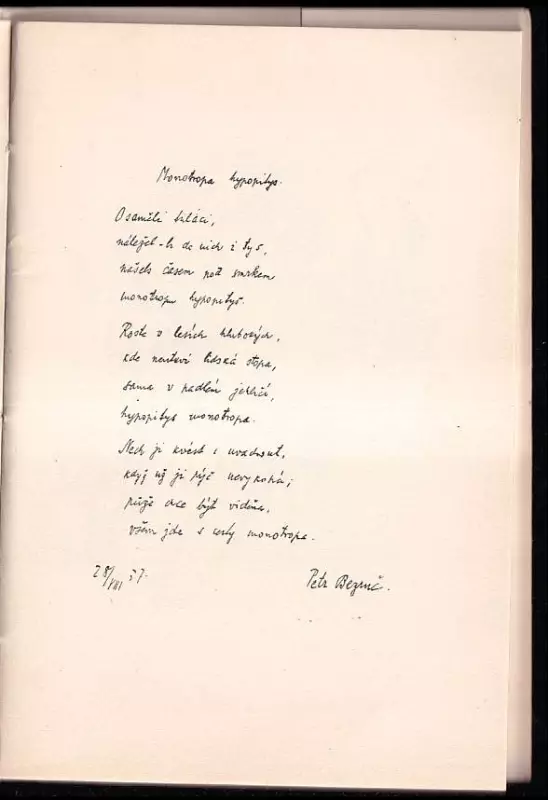 Monotropa hypopitys.
Osamělí tuláci,
náležel-li do nich i tys,
našels časem pod smrkem
monotropu hypopitys.
Roste v lesích hlubokých,
kde neutkví lidská stopa,
sama v padlém jehličí,
hypopitys monotropa.
Nech ji kvést i uvadnout,
když už ji rýč nevykopá;
nechce být viděna,
všem jde s cesty monotropa.
28/VIII 37.
Petr Bezruč.